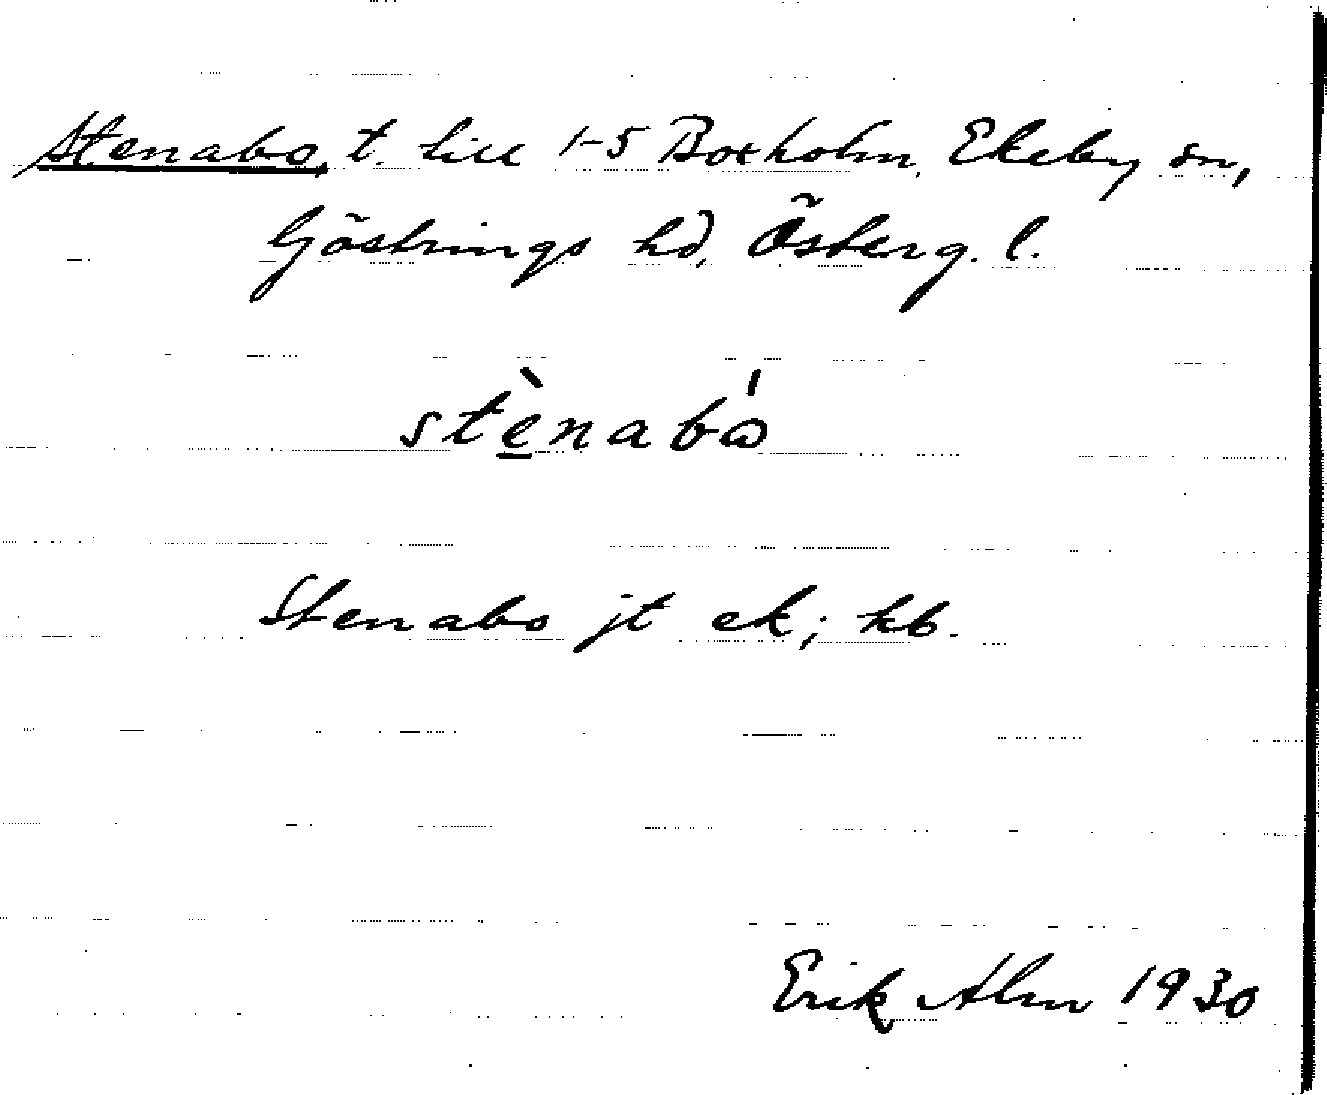 Stenabo, t. till 1-5 Boxholm, Ekeby sn,
Göstrings hd, Österg. l.
stènabω̍
Stenabo jt ek; hb.
Erik Alm 1930